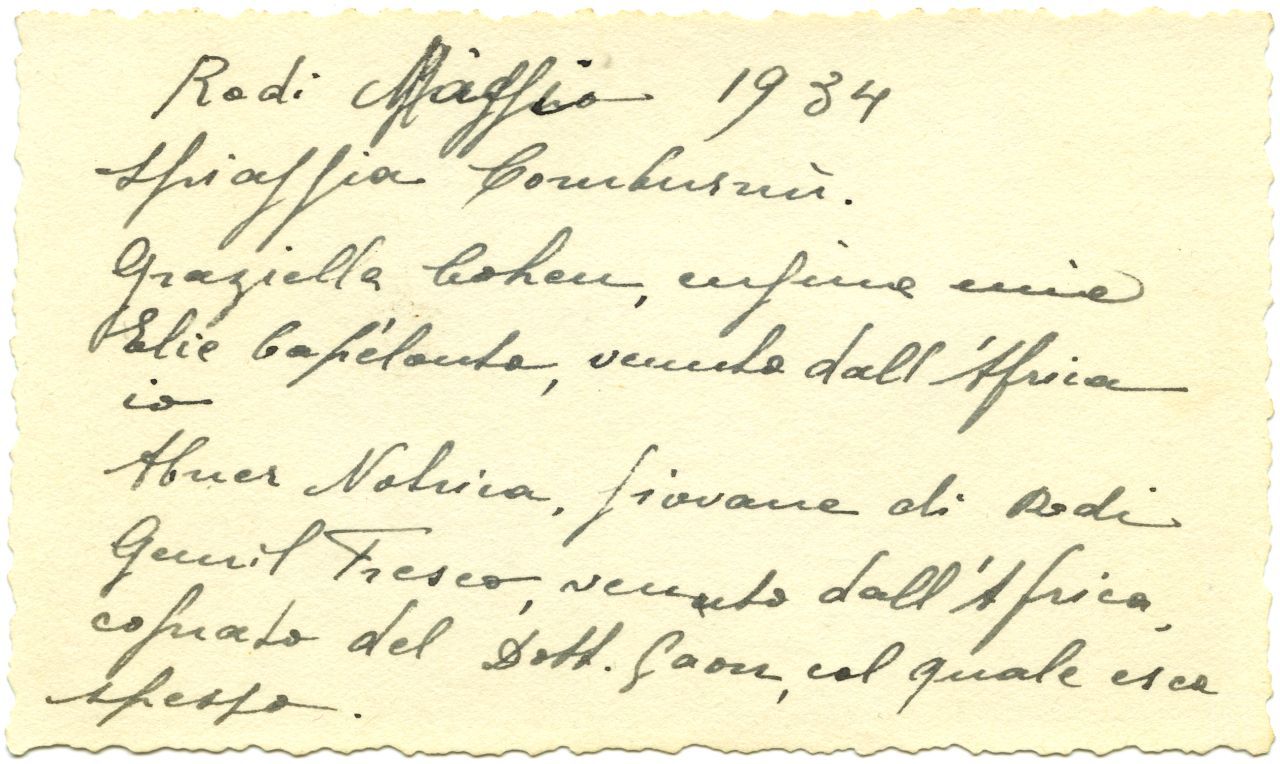 Rodi Maggio 1934
Spiaggia Comburnù.
Graziella Cohen, cugina mia
Elie Capélouto, venuto dall'Africa
io
Abner Notrica, giovane di Rodi
Gemil Fresco, venuto dall'Africa,
cognato del Dott. Gaon, col quale esco
spesso.